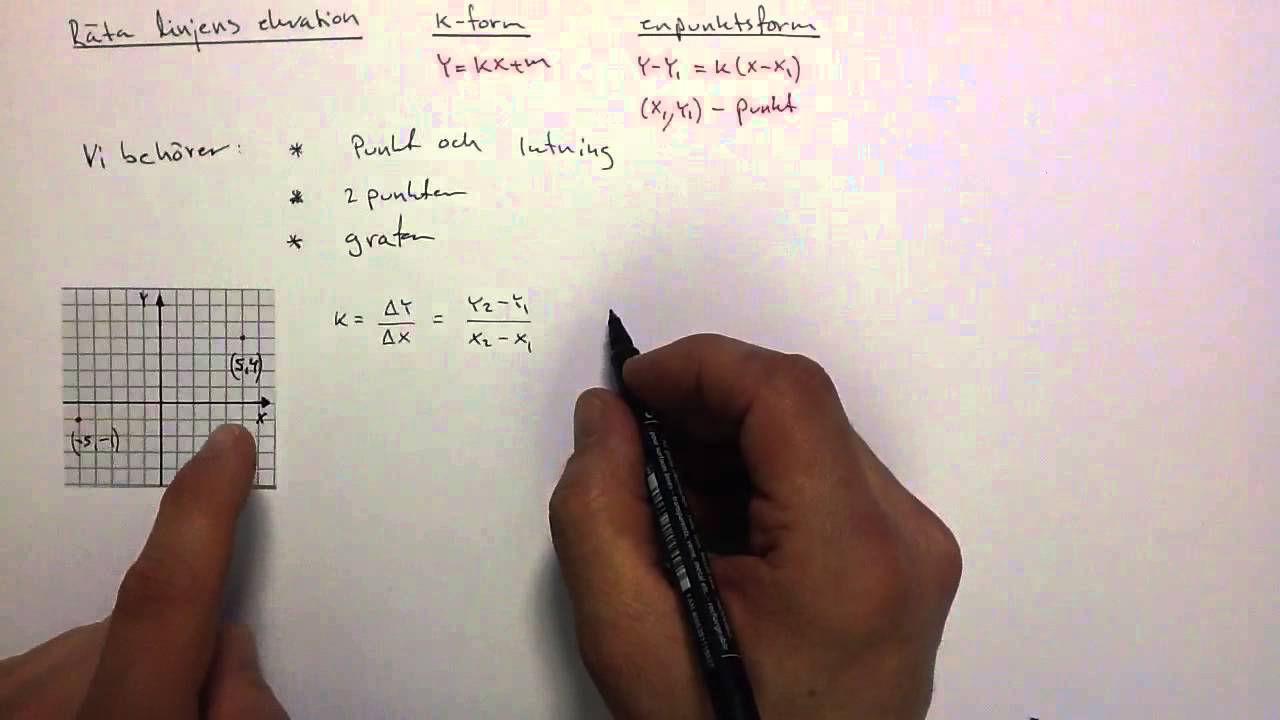 Räta linjens ekvation
k-form
enpunktsform
Y=kx+m
Y-Y₁ = k(x-x₁)
(x₁,Y₁) - punkt
Vi behöver: * Punkt och lutning
* 2 punkter
* grafen
Y
(5,4)
X
(-5,-1)
k = ΔY/ΔX = (Y₂-Y₁)/(X₂-X₁)